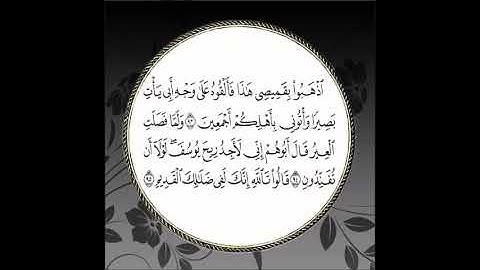 ٱذۡهَبُواْ بِقَمِيصِي هَٰذَا فَأَلۡقُوهُ عَلَىٰ وَجۡهِ أَبِي يَأۡتِ
بَصِيرٗا وَأۡتُونِي بِأَهۡلِكُمۡ أَجۡمَعِينَ ٩٣ وَلَمَّا فَصَلَتِ
ٱلۡعِيرُ قَالَ أَبُوهُمۡ إِنِّي لَأَجِدُ رِيحَ يُوسُفَۖ لَوۡلَآ أَن
تُفَنِّدُونِ ٩٤ قَالُواْ تَٱللَّهِ إِنَّكَ لَفِي ضَلَٰلِكَ ٱلۡقَدِيمِ ٩٥